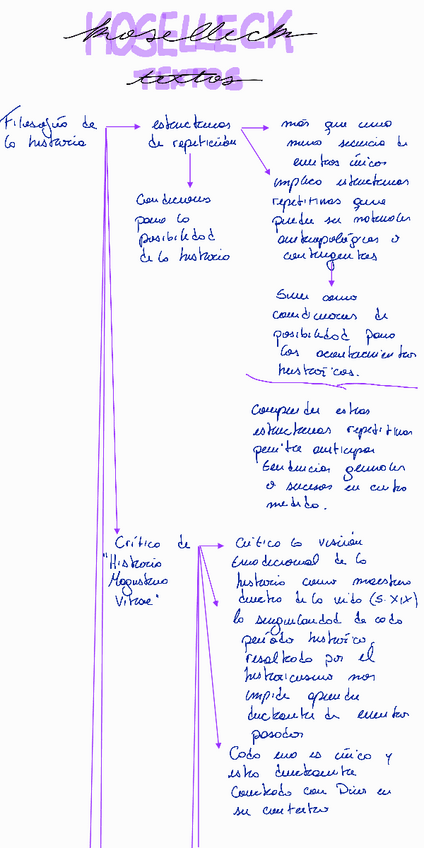 KOSELLECK
Koselleck
TEXTOS
textos
Filosofía de
la historia
estructuras
de repetición
Condiciones
para la
posibilidad
de la historia
más que una
mera secuencia de
eventos únicos
implica estructuras
repetitivas que
pueden ser naturales
antropológicas o
contingentes
Sirven como
condiciones de
posibilidad para
los acontecimientos
históricos.
Comprender estas
estructuras repetitivas
permite anticipar
tendencias generales
o sucesos en cierta
medida.
Crítica de
"Historia
Magistra
Vitae"
Critica la visión
tradicional de la
historia como maestra
directa de la vida (S. XIX)
la singularidad de cada
periodo histórico,
resaltada por el
historicismo nos
impide aprender
directamente de eventos
pasados
Cada era es única y
está directamente
conectada con Dios en
su contexto